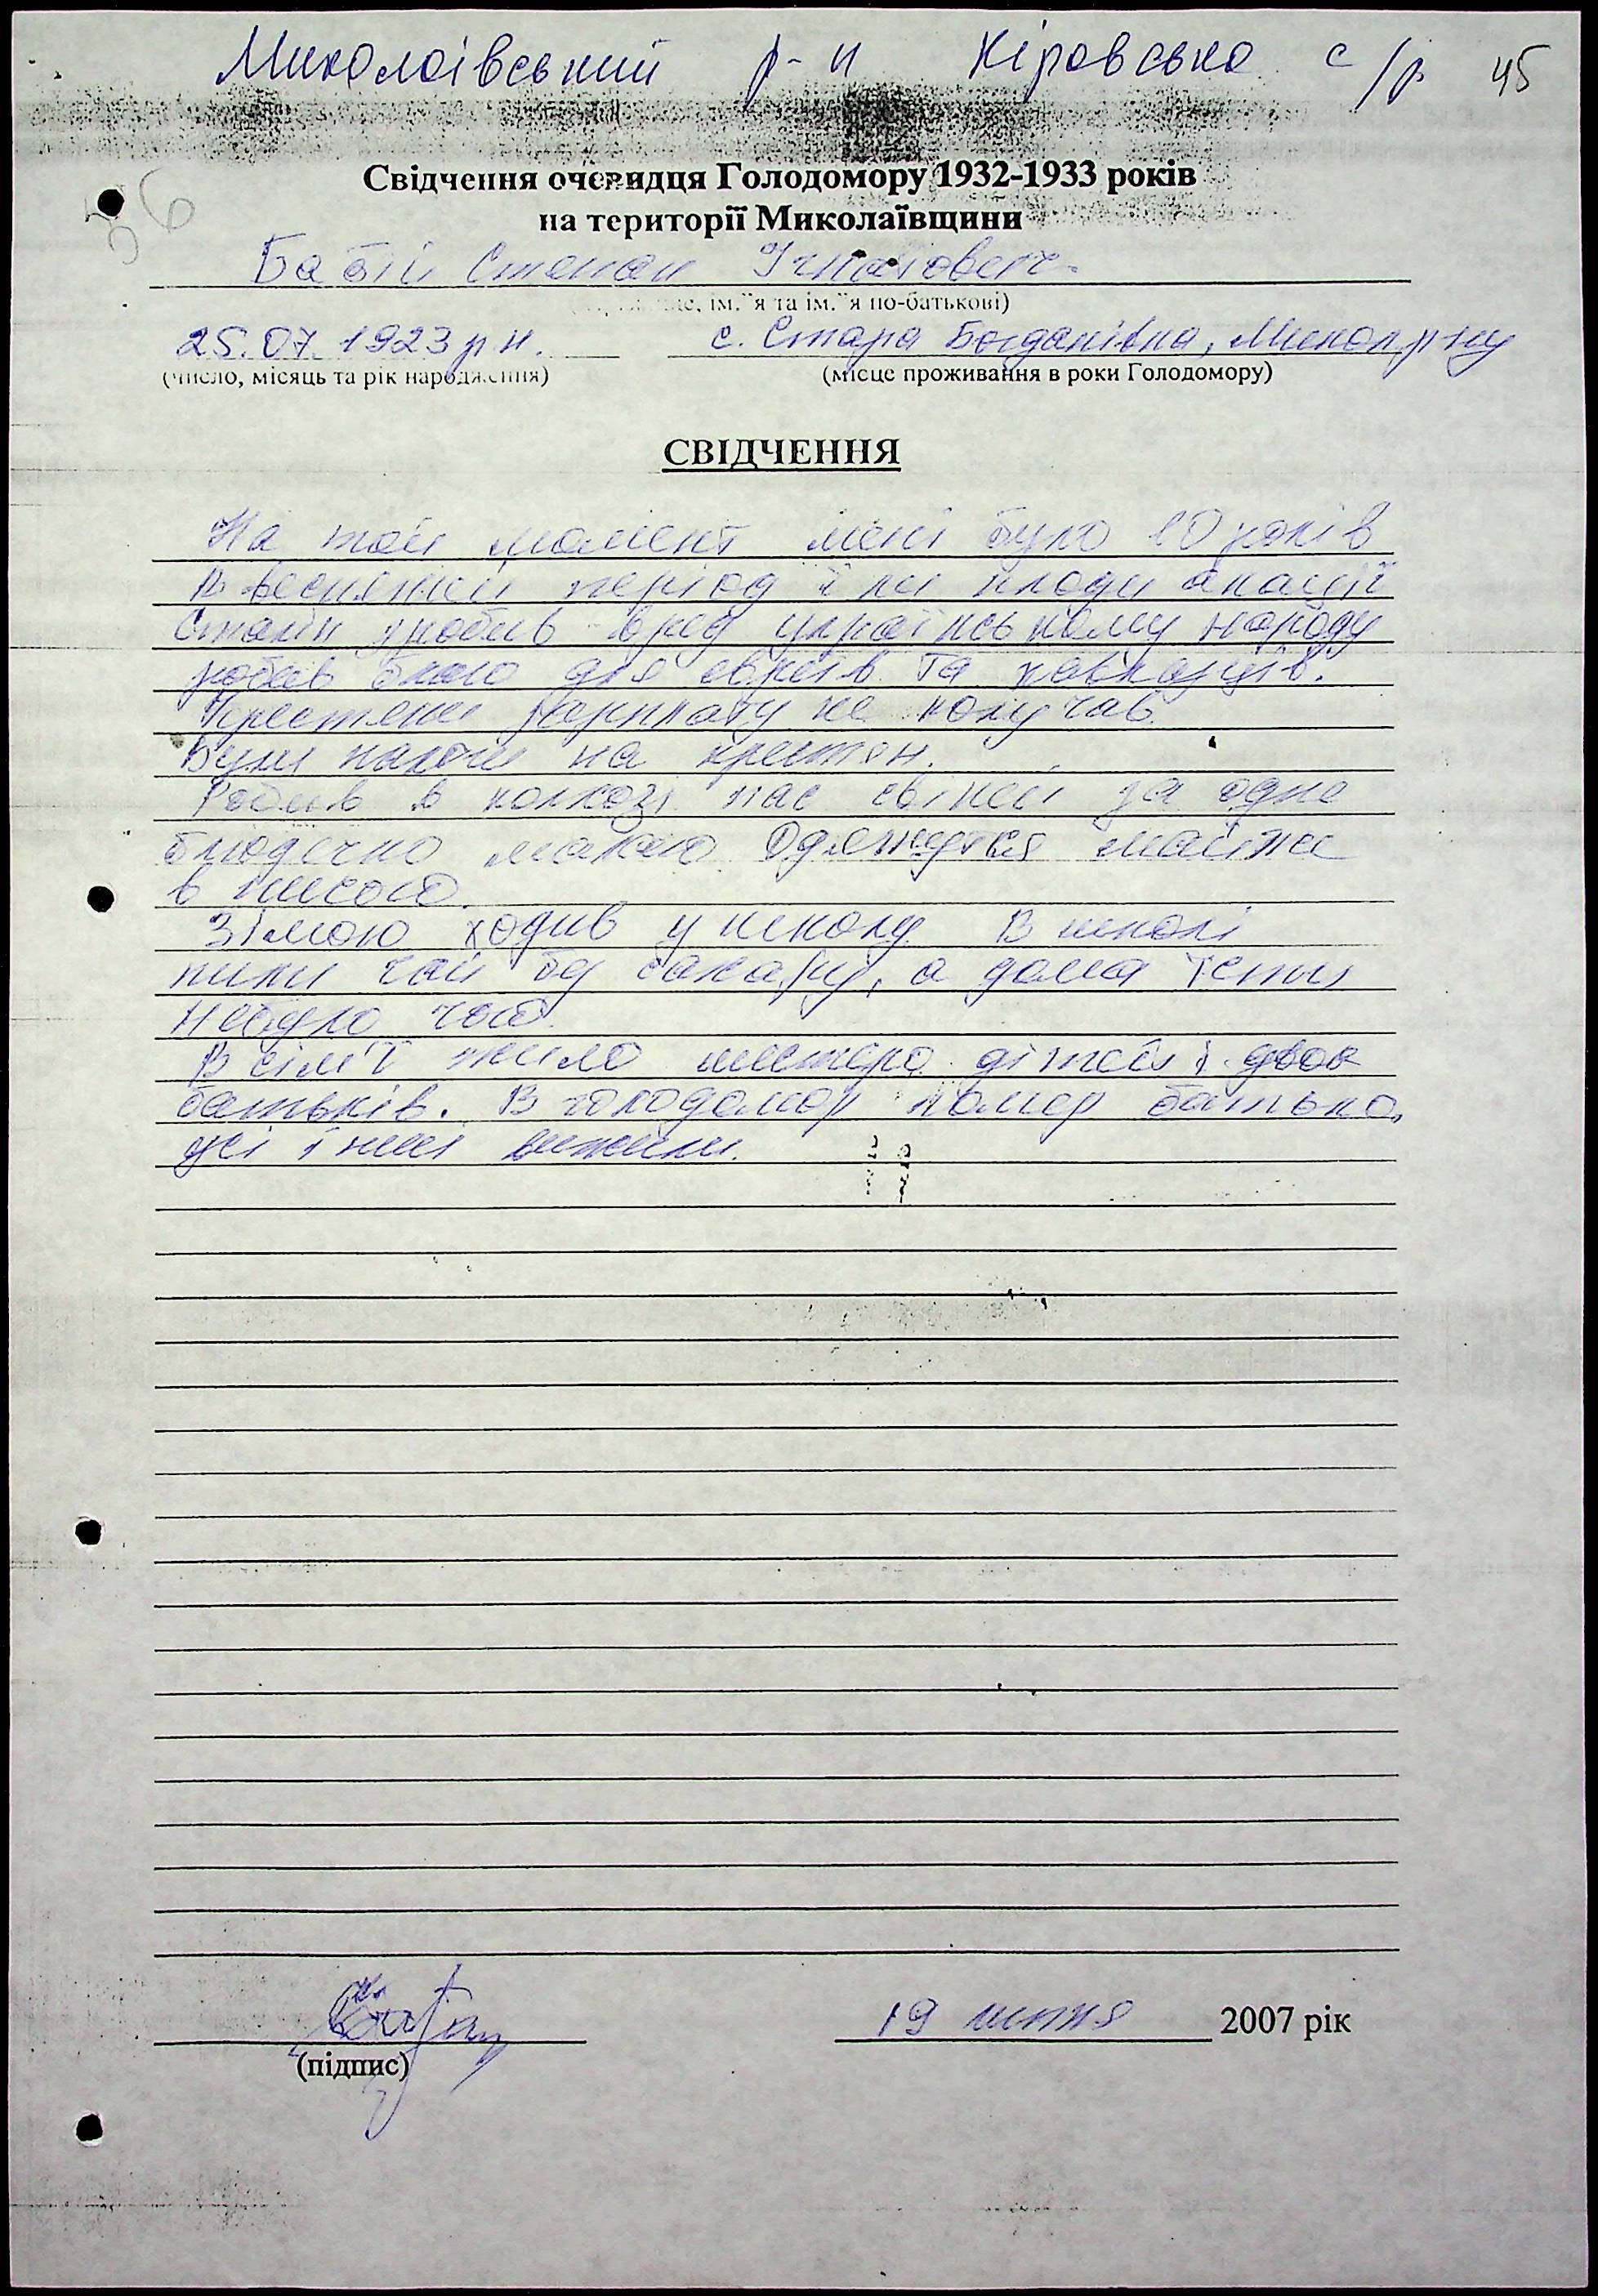 Миколоівський р-н Кіровська с/р 45
56
Свідчення очевидця Голодомору 1932-1933 років
на території Миколаївщини
Бабій Степан Ігнатович
ім.'я та ім.'я по-батькові)
25.07.1923 р н. с. Стара Богданівка, Микол р-ну
(число, місяць та рік народження) (місце проживання в роки Голодомору)
СВІДЧЕННЯ
На той момент мені було 10 років
В весняний період їли плоди акації
Сталін зробив вред українському народу
робив благо для євреїв та кавказців.
Крестянин зарплату не получав
Були налоги на крестян.
Робив в колхозі пас свіней за одне
блюдечко макаю Одягнутися майже
в нисого.
Зімою ходив у школу В школі
пили чай бз сахару, а дома тепыи
небуло чоо.
В сім'ї жило шестеро дітей і двоє
батьків. В голодомор помер батько,
усі інші вижили.
(підпис) 19 лютня 2007 рік